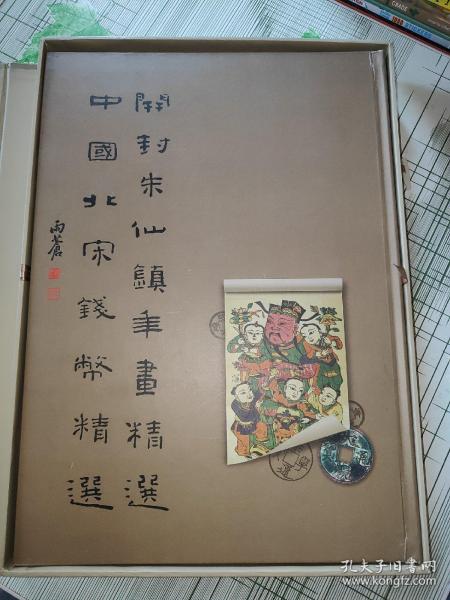 開封朱仙鎮年畫精選
中國北宋錢幣精選
雨蒼
GRADE
孔夫子旧书网
www.kongfz.com